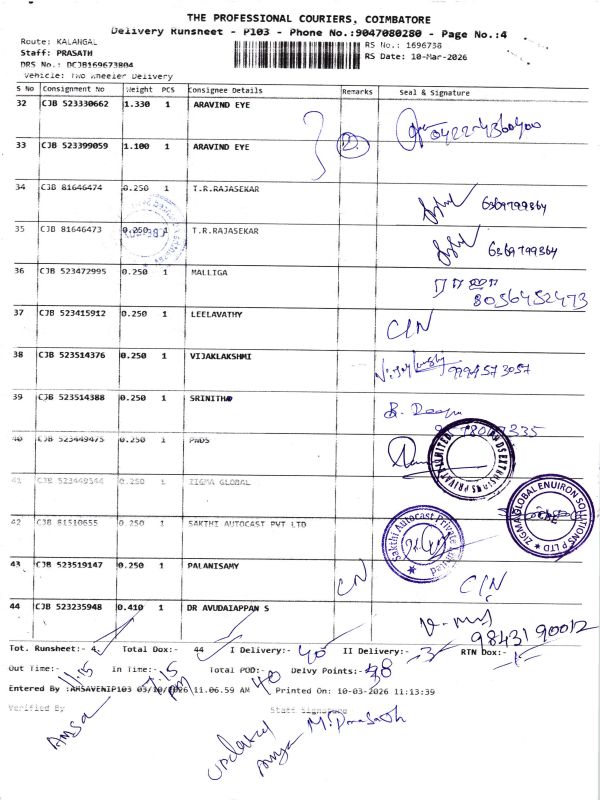 THE PROFESSIONAL COURIERS, COIMBATORE
Delivery Runsheet - P103 - Phone No.:9047080280 - Page No.:4
Route: KALANGAL
RS No.: 1696738
Staff: PRASATH
RS Date: 10-Mar-2026
DRS No.: DCJB169673804
Vehicle: Two Wheeler Delivery
S No Consignment No Weight PCS Consignee Details Remarks Seal & Signature
32 CJB 523330662 1.330 1 ARAVIND EYE
0422-4360400
33 CJB 523399059 1.100 1 ARAVIND EYE
34 CJB 81646474 0.250 1 T.R.RAJASEKAR
6369799364
35 CJB 81646473 0.250 1 T.R.RAJASEKAR
6369799364
36 CJB 523472995 0.250 1 MALLIGA
8056452473
37 CJB 523415912 0.250 1 LEELAVATHY
C/N
38 CJB 523514376 0.250 1 VIJAKLAKSHMI
9994573057
39 CJB 523514388 0.250 1 SRINITHA
40 CJB 523449475 0.250 1 PADS
41 CJB 523449544 0.250 1 ZIGMA GLOBAL
ZIGMA GLOBAL ENVIRON SOLUTIONS P LTD
42 CJB 81510655 0.250 1 SAKTHI AUTOCAST PVT LTD
Sakthi Autocast Private Limited
43 CJB 523519147 0.250 1 PALANISAMY
C/N C/N
44 CJB 523235948 0.410 1 DR AVUDAIAPPAN S
9843190012
Tot. Runsheet:- 4 Total Dox:- 44 I Delivery:- 40 II Delivery:- 3 RTN Dox:- 1
Out Time:- 11.15 In Time:- 7.15 pm Total POD:- 40 Delvy Points:- 38
Entered By :AMSAVENIP103 03/10/2026 11.06.59 AM Printed On: 10-03-2026 11:13:39
Verified By Staff Signature
Amsa updated M. Prasath